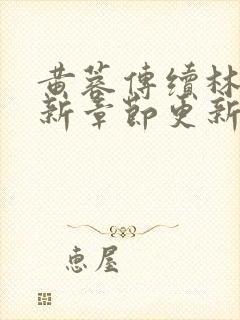 黄蓉傳續林
新章節更新
恵屋